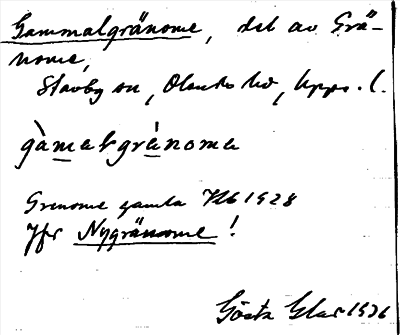 Gammalgränome, del av Grä-
nome,
Stavby sn, Olands hd, Upps. l.
gàmalgrànoma
Grenome gamla 1928
Jfr Nygränome!
Gösta 1936